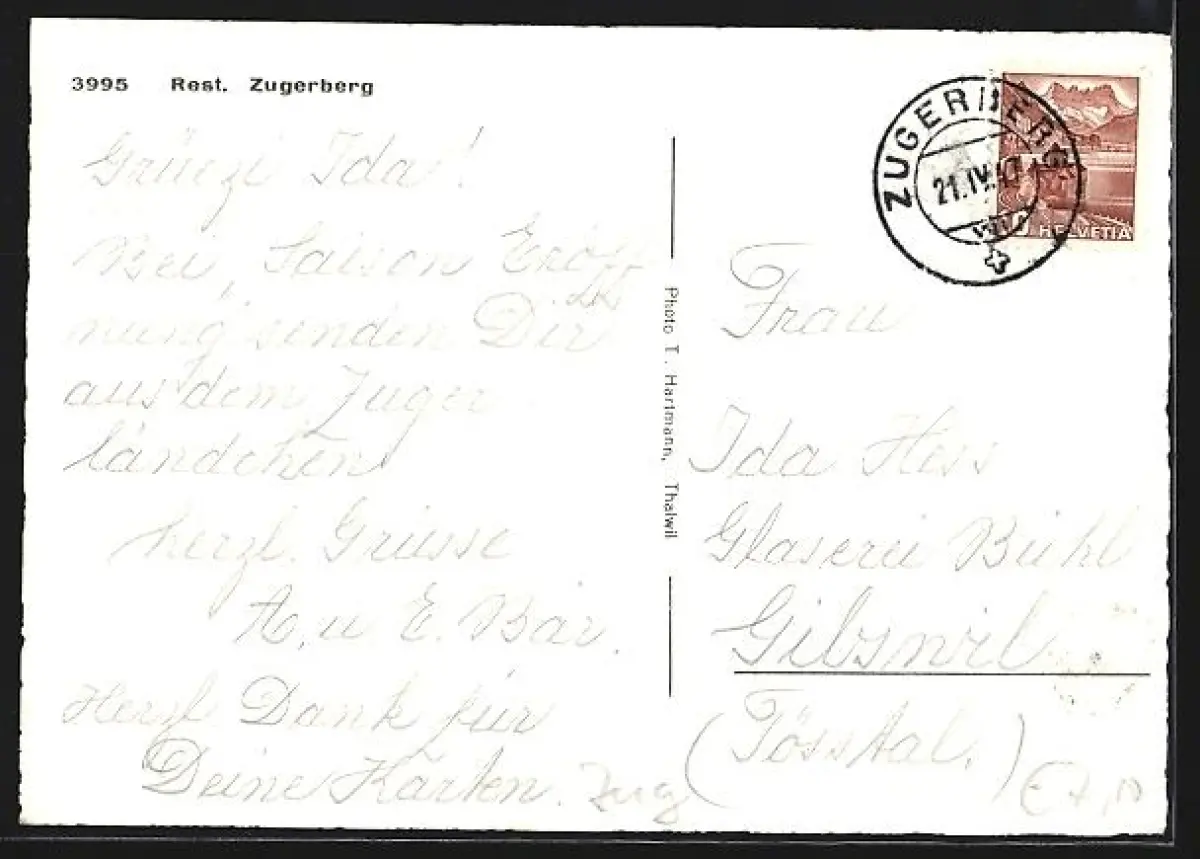 3995 Rest. Zugerberg
Grüezi Ida!
Bei Saison Eröff
nung senden Dir
aus dem Zuger
ländchen
herzl. Grüsse
A. u E. Bär.
Herzl Dank für
Deine Karten. Zug
Photo T. Hartmann, Thalwil
ZUGERBERG
21.IV.47
HELVETIA
Frau
Ida Hess
Glaserei Bühl
Gibswil
(Tösstal.)